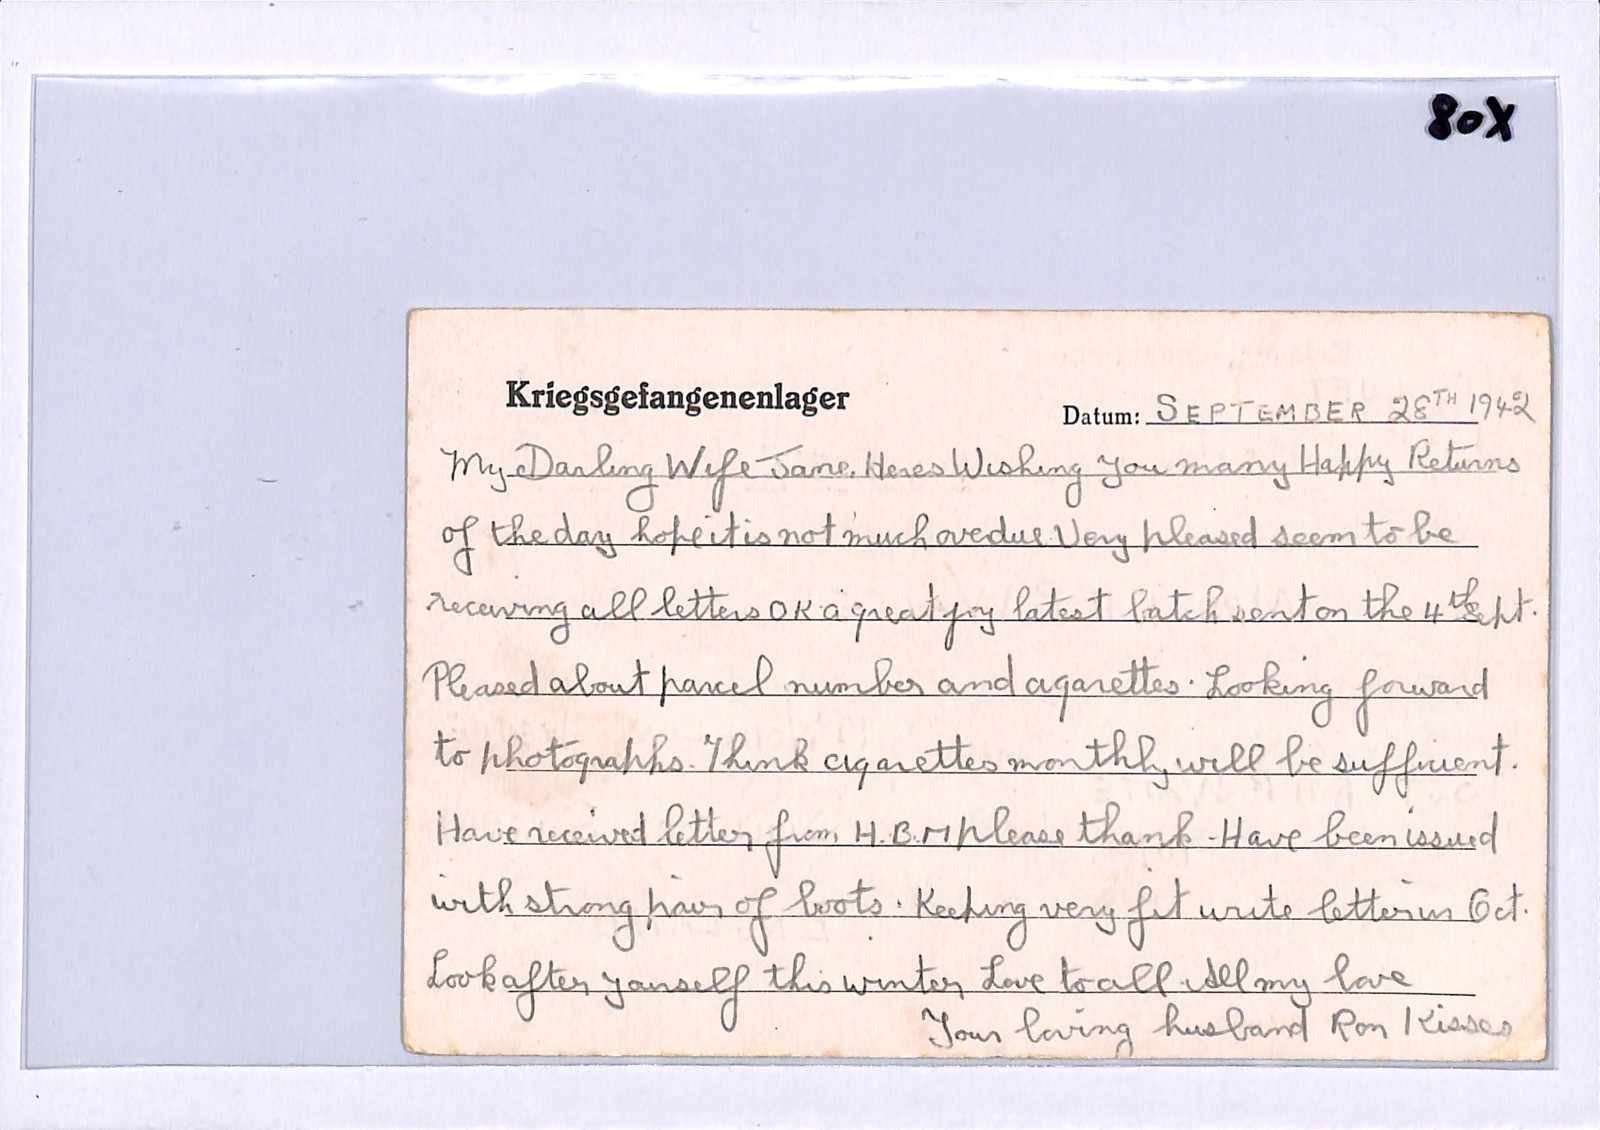 80X
Kriegsgefangenenlager
Datum: SEPTEMBER 28TH 1942
My Darling Wife Jane. Heres Wishing you many Happy Returns
of the day hope it is not much overdue Very pleased seem to be
receiving all letters OK a great joy latest batch sent on the 4th Sept.
Pleased about parcel number and cigarettes. Looking forward
to photographs. Think cigarettes monthly will be sufficient.
Have received letter from H.B.M please thank - Have been issued
with strong pair of boots. Keeping very fit write letter in Oct.
Look after yourself this winter Love to all All my love
Your loving husband Ron Kisses